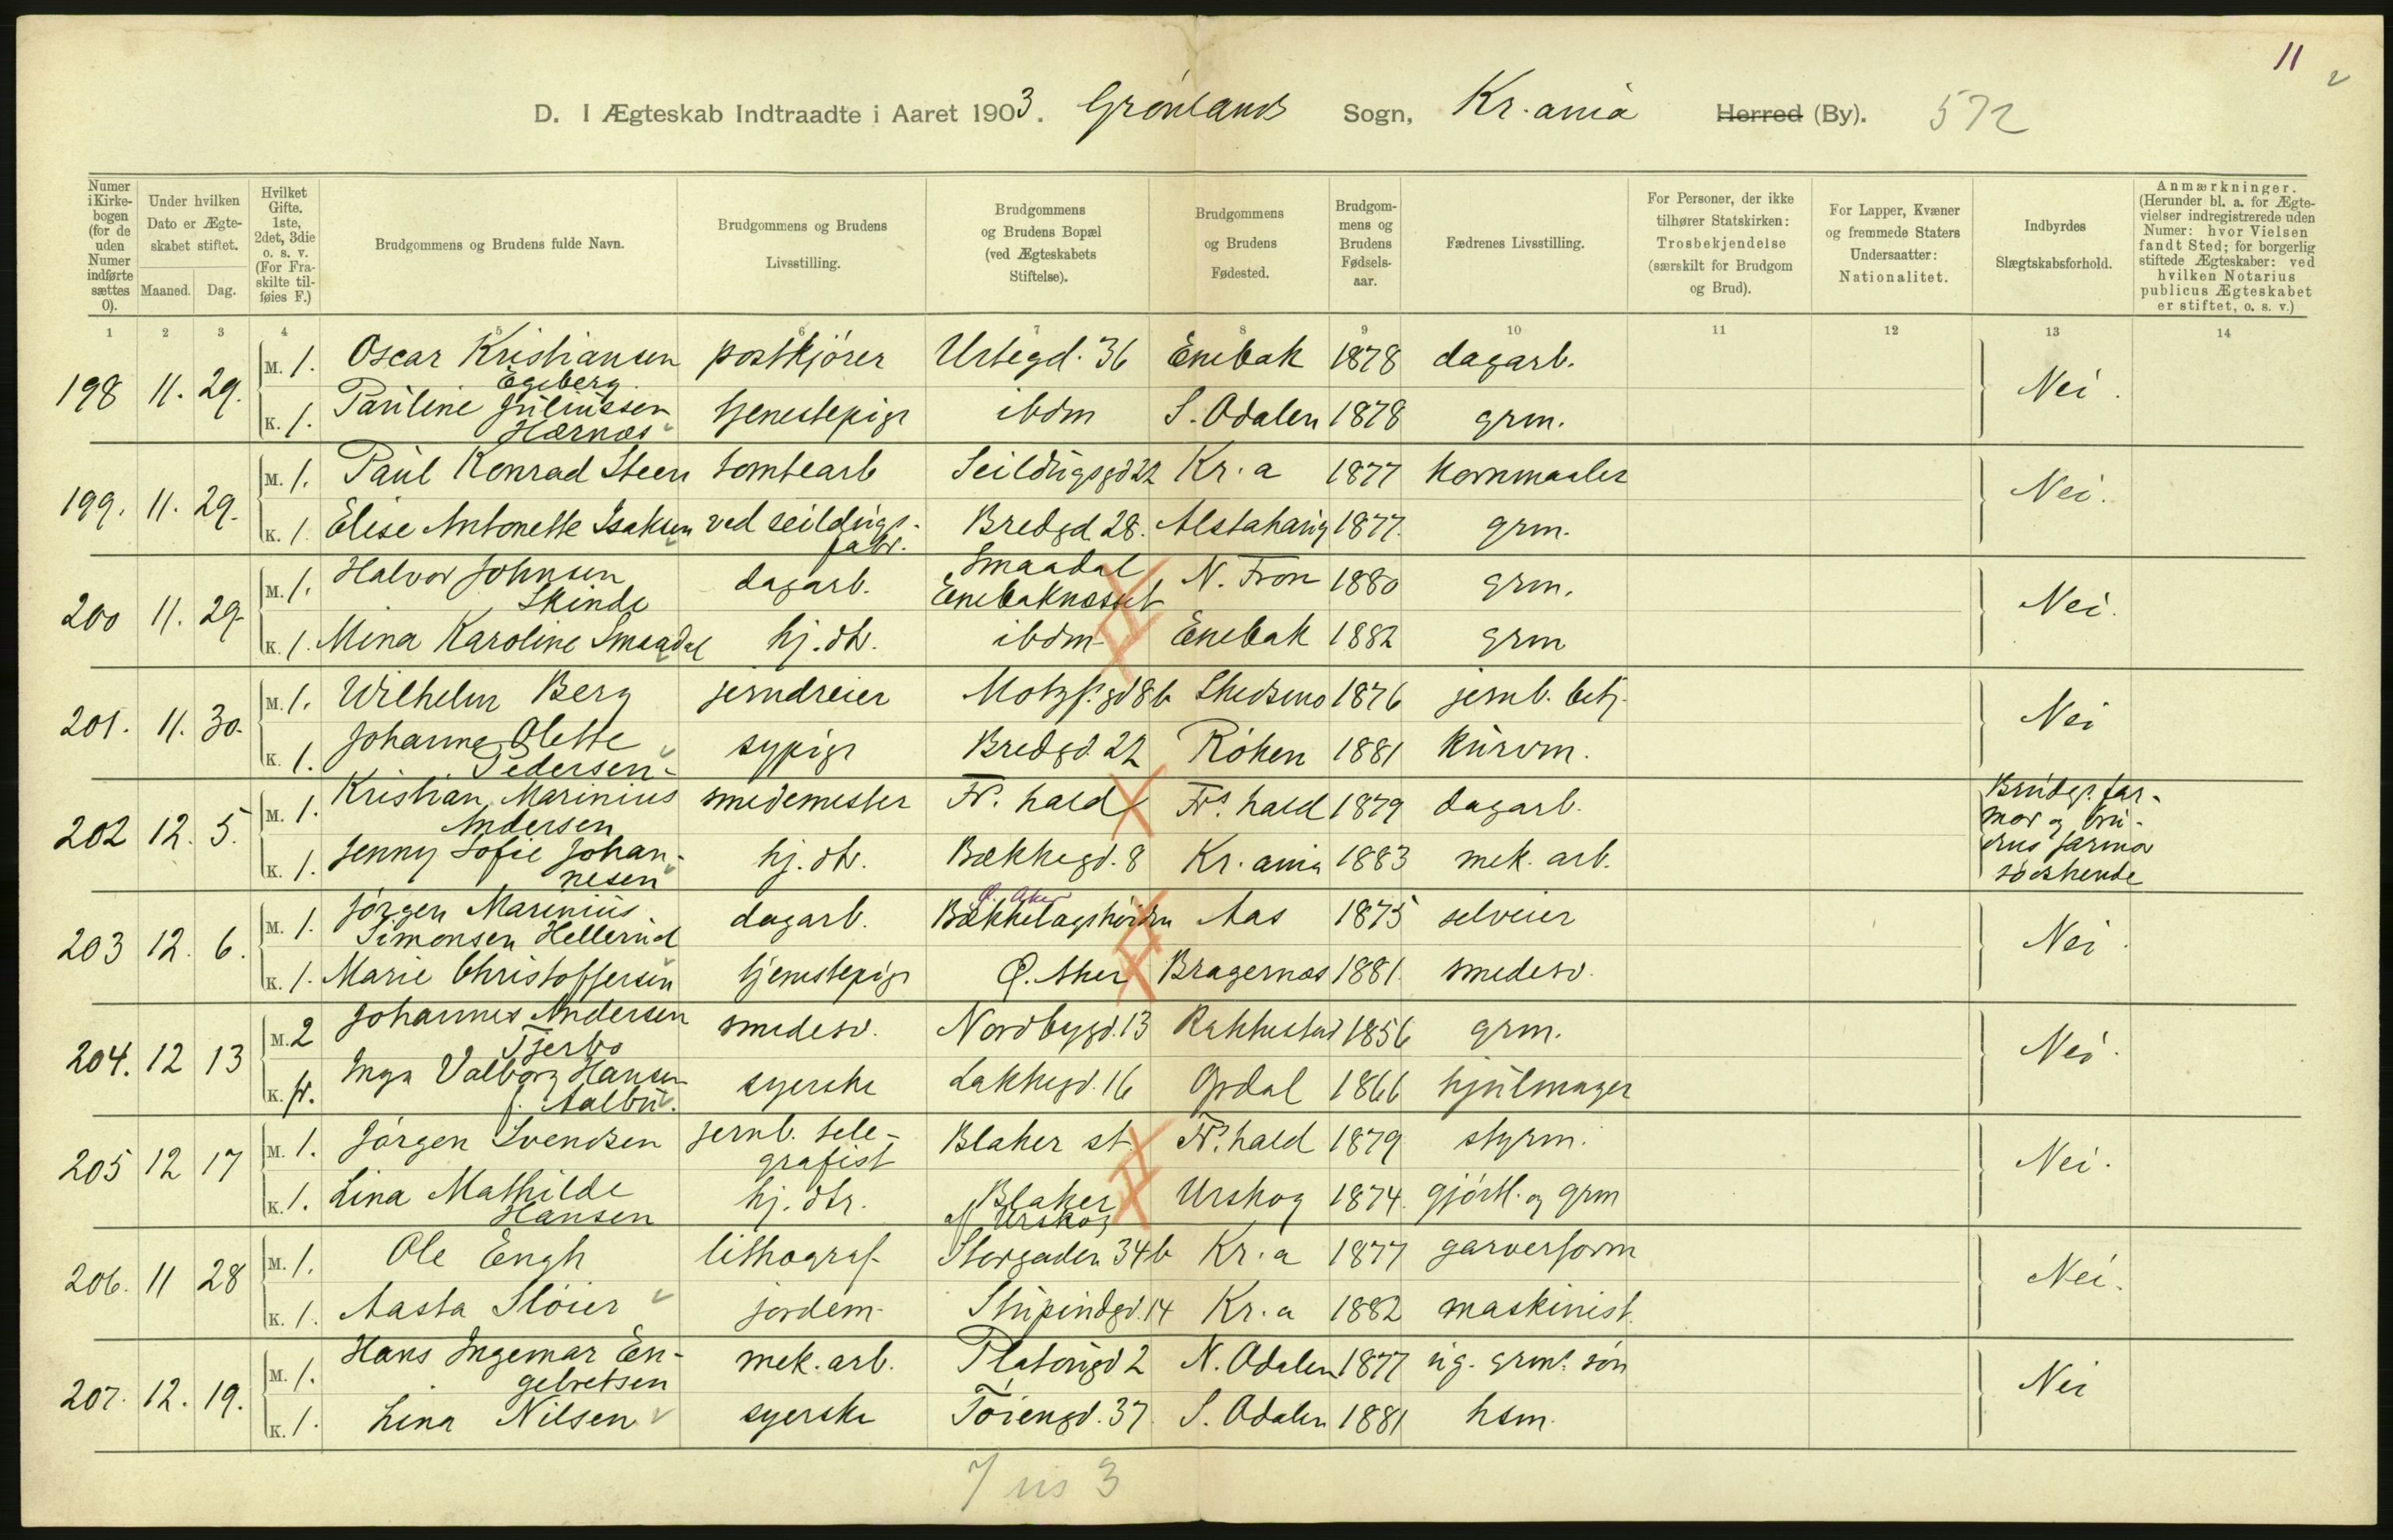 11
2
D. I Ægteskab Indtraadte i Aaret 1903. Grønlands Sogn, Kr.ania Herred (By). 572
Numer i Kirkebogen (for de uden Numer indførte sættes 0).
Under hvilken Dato er Ægteskabet stiftet.
Maaned. Dag.
Hvilket Gifte. 1ste, 2det, 3die o. s. v. (For Fraskilte tilføies F.)
Brudgommens og Brudens fulde Navn.
Brudgommens og Brudens Livsstilling.
Brudgommens og Brudens Bopæl (ved Ægteskabets Stiftelse).
Brudgommens og Brudens Fødested.
Brudgommens og Brudens Fødselsaar.
Fædrenes Livsstilling.
For Personer, der ikke tilhører Statskirken: Trosbekjendelse (særskilt for Brudgom og Brud).
For Lapper, Kvæner og fremmede Staters Undersaatter: Nationalitet.
Indbyrdes Slægtskabsforhold.
Anmærkninger. (Herunder bl. a. for Ægtevielser indregistrerede uden Numer: hvor Vielsen fandt Sted; for borgerlig stiftede Ægteskaber: ved hvilken Notarius publicus Ægteskabet er stiftet, o. s. v.)
1 2 3 4 5 6 7 8 9 10 11 12 13 14
198 11. 29. M. 1. Oscar Kristiansen Egeberg postkjører Urtegd. 36 Enebak 1878 dagarb. Nei.
K. 1. Pauline Juliussen Hærnæs tjenestepige ibdm S. Odalen 1878 grm.
199. 11. 29. M. 1. Paul Konrad Steen tomtearb Seildugsgd 22 Kr.a 1877 kornmaaler Nei.
K. 1 Elise Antonette Isaksen ved seildugsfabr. Bredgd. 28. Alstahaug 1877. grm.
200 11. 29. M. 1. Halvor Johnsen Skinde dagarb. Smaadal Enebaknæsset N. Fron 1880 grm. Nei.
K. 1. Mina Karoline Smaadal hj. dtr. ibdm Enebak 1882 grm
201. 11. 30. M. 1. Wilhelm Berg jerndreier Motzf. gd 8b Skedsmo 1876 jernb. betj. Nei
K. 1. Johanne Olette Pedersen sypige Bredgd. 22 Røken 1881 kurvm.
202 12. 5. M. 1. Kristian Marinius Andersen smedemester Fr. hald Frs. hald 1879 dagarb. Brudgs. farmor og brudens farmor søskende
K. 1. Jenny Sofie Johannesen hj. dtr. Bækkegd. 8 Kr.ania 1883 mek. arb.
203 12. 6. M. 1. Jørgen Marinius Simonsen Hellerud dagarb. Ø. Aker Bækkelagshøiden Aas 1875 selveier Nei.
K. 1. Marie Christoffersen tjenestepige Ø. Aker Bragernæs 1881. smedesv.
204. 12 13 M. 2 Johannes Andersen Tjerbo smedesv. Nordbygd. 13 Rakkestad 1856 grm. Nei.
K. fr. Inga Valborg Hansen f. Aalbu. syerske Lakkegd. 16 Opdal 1866 hjulmager
205 12 17 M. 1. Jørgen Svendsen jernb. telegrafist Blaker st. Frs. hald 1879 styrm. Nei.
K. 1. Lina Mathilde Hansen hj. dtr. Blaker af Urskog Urskog 1874. gjørtl. og grm
206. 11 28 M. 1. Ole Engh lithograf Storgaden 34b Kr.a 1877 garverform Nei.
K. 1. Aasta Sløier jordem. Stupindgd. 14 Kr.a 1882 maskinist.
207. 12. 19. M. 1. Hans Ingemar Engebretsen mek. arb. Platougd 2 N. Odalen 1877 ug. grms. søn Nei
K. 1. Lina Nilsen syerske Tøiengd. 37. S. Odalen 1881 hsm.
7 us 3